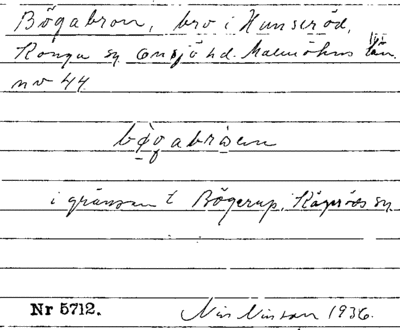 Bögabron, bro i Hunseröd,
Konga sn Onsjö hd. Malmöhus län.
nv 44
i gränsen t Bögerup, Kågeröds sn
Nr 5712. Nils Nilsson 1936.